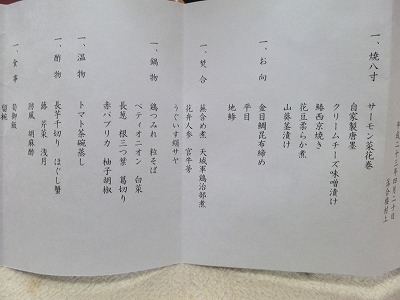 平成二十三年四月二十日
落合楼村上
一、焼八寸
サーモン菜花巻
自家製唐墨
クリームチーズ味噌漬け
鰆西京焼き
花豆柔らか煮
山葵茎漬け
一、お向
金目鯛昆布締め
平目
地鯵
一、焚合
蕪含め煮 天城軍鶏治部煮
花弁人参 官牛蒡
うぐいす絹サヤ
一、鍋物
鶏つみれ 粒そば
ペティオニオン 白菜
長葱 根三つ葉 葛切り
赤パプリカ 柚子胡椒
一、温物
トマト茶碗蒸し
一、酢物
長芋千切り ほぐし蟹
蕗 芹菜 浅月
防風 胡麻酢
一、食事
筍御飯
留椀